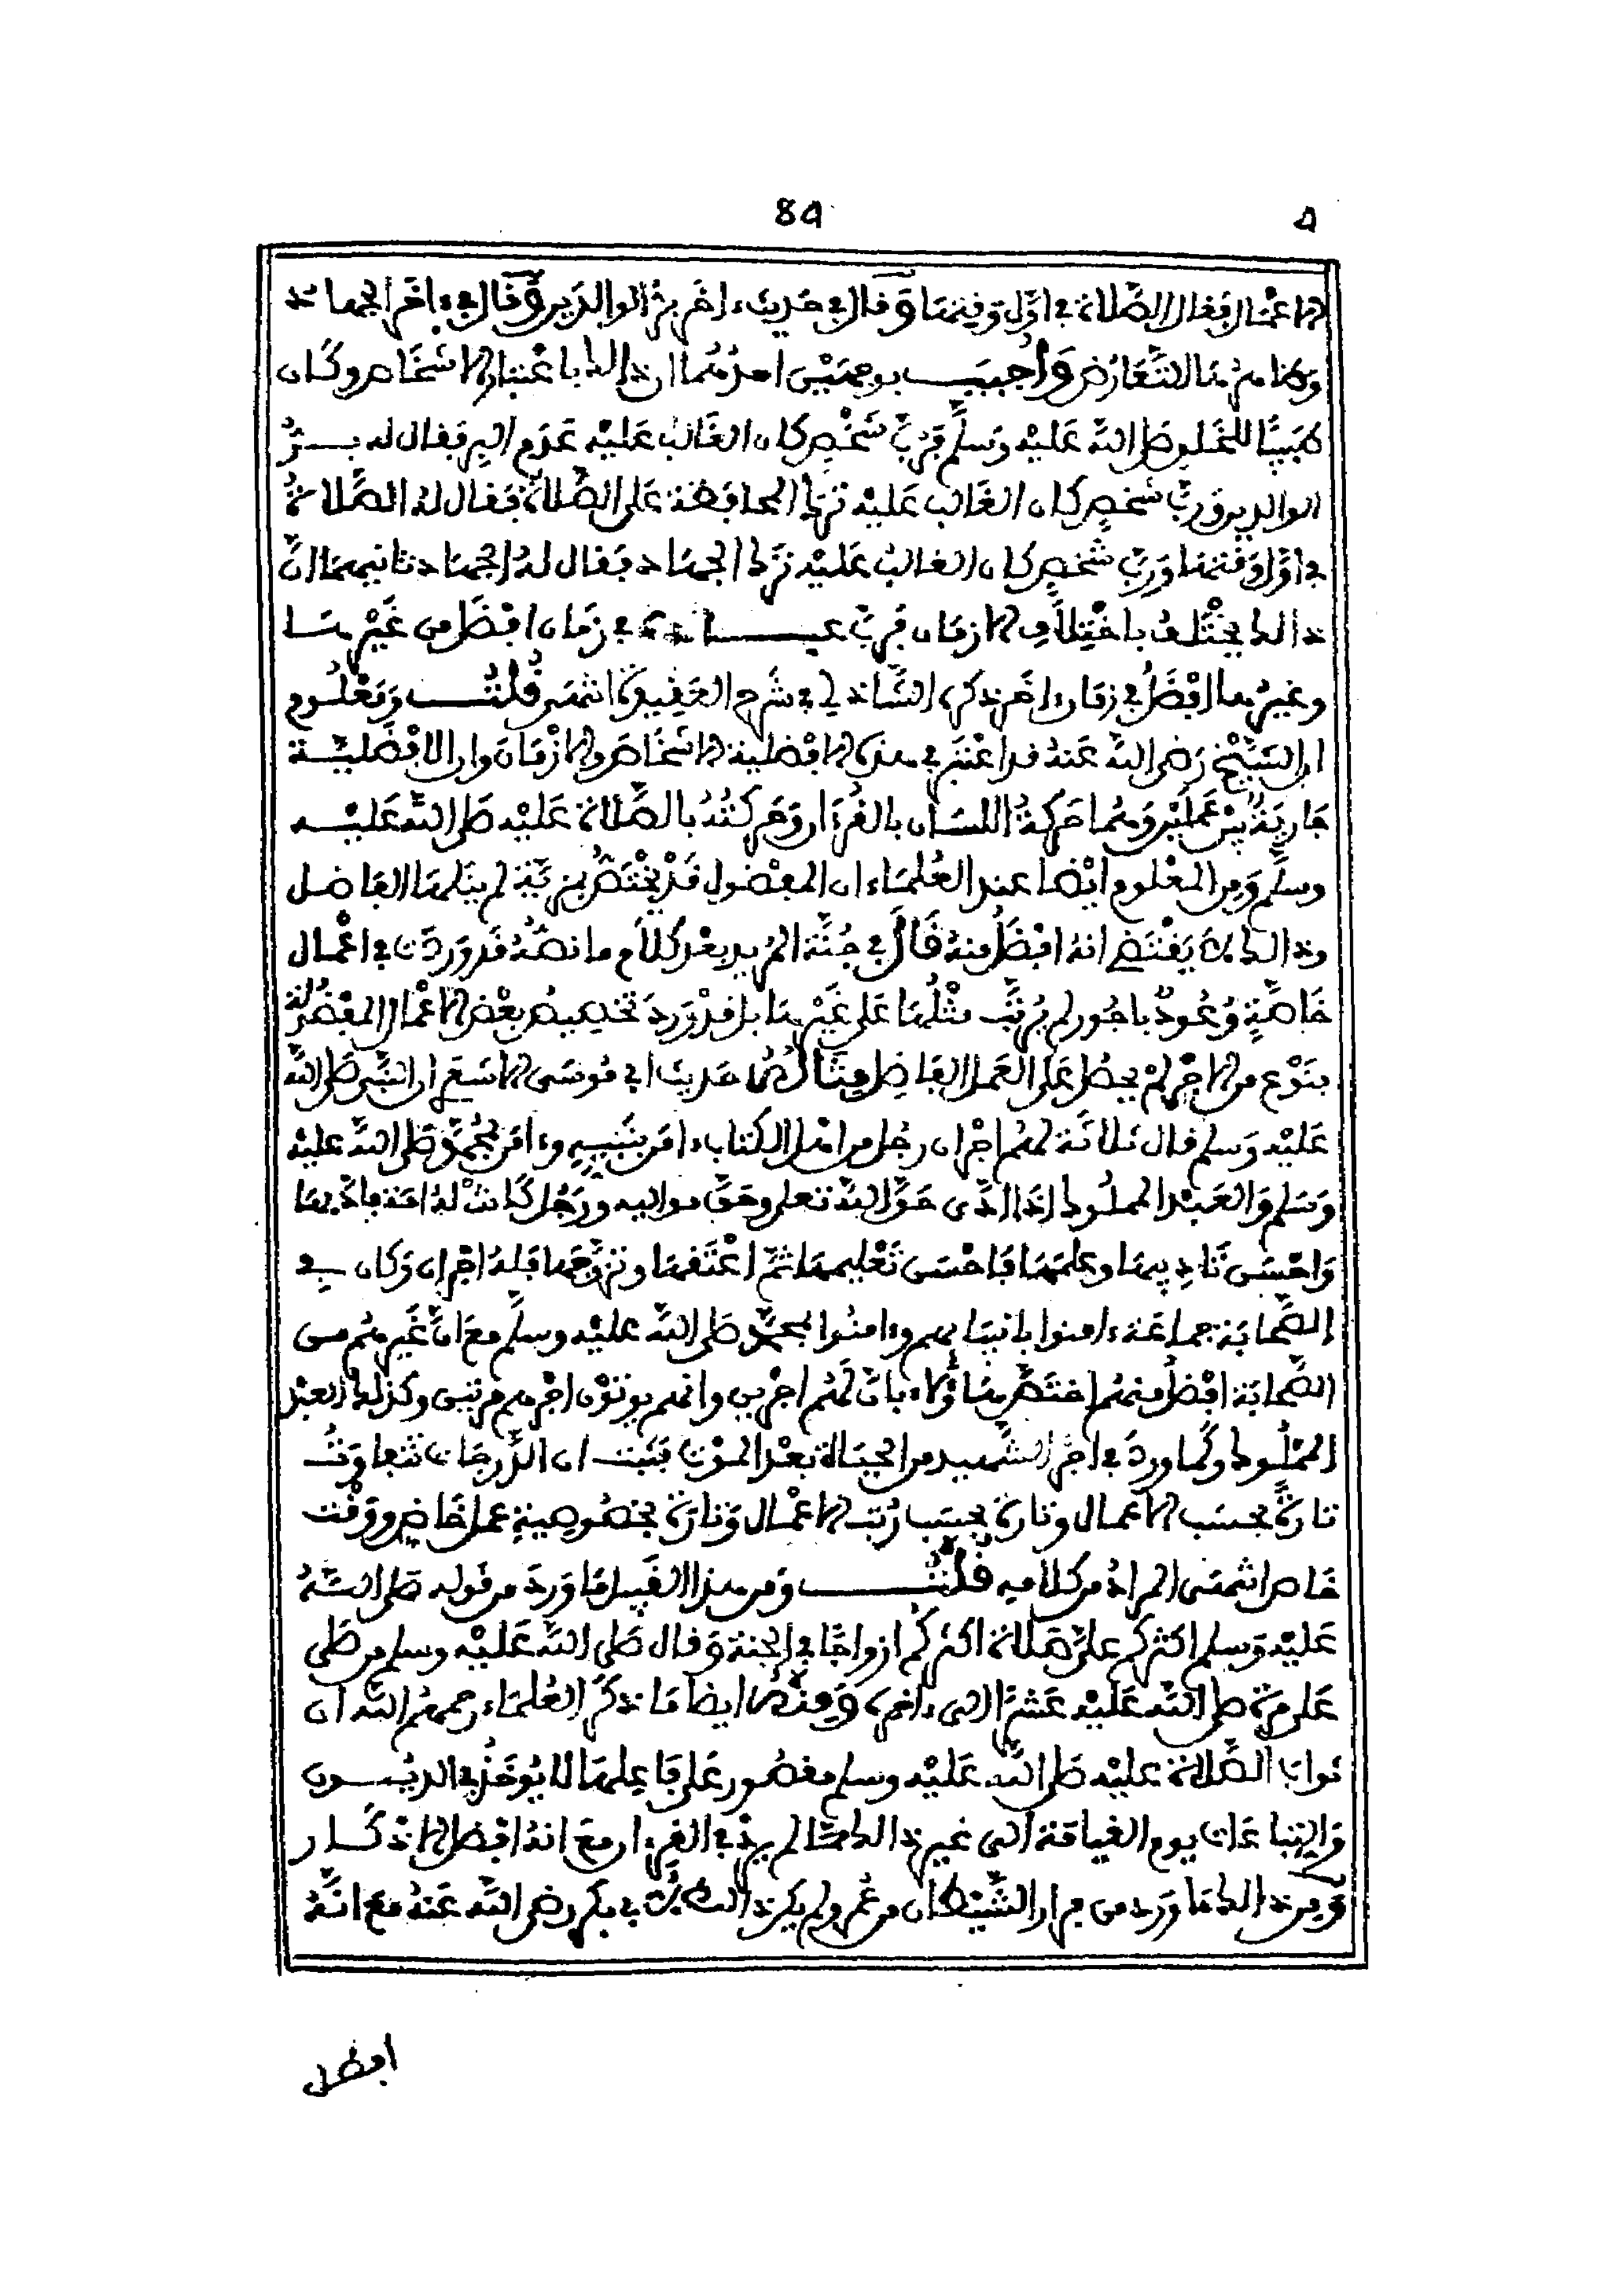 89
الاعمال فقال الصلاة في اول وقتها وقال في حديث ءاخر بر الوالدين وقال في ءاخر الجهاد
وظاهرها التعارض وأجيب بوجهين احدهما ان ذالك باعتبار الاشخاص وكان
طبيبا للخلق صلى الله عليه وسلم فرب شخص كان الغالب عليه عدم البر فقال له بر
الوالدين ورب شخص كان الغالب عليه ترك المحافظة على الصلاة فقال له الصلاة
في اول وقتها ورب شخص كان الغالب عليه ترك الجهاد فقال له الجهاد ثانيهما ان
ذالك يختلف باختلاف الازمان فرب عبادة في زمان افضل من غيرها
وغيرها افضل في زمان ءاخر ذكره الشاذلي في شرح العقيدة انتهى قلت ومعلوم
ان الشيخ رضي الله عنه قد اعتبر في هذه الافضلية الاشخاص والازمان وان الافضلية
جارية بين عملين وهما حركة اللسان بالقرءان وحركته بالصلاة عليه صلى الله عليه
وسلم ومن المعلوم ايضا عند العلماء ان المفضول قد يختص بمزية لم ينلها الفاضل
وذالك لا يقتضي انه افضل منه قال في جنة المريد بعد كلام ما نصه قد وردت في اعمال
خاصة وعود باجور لم يرتب مثلها على غيرها بل قد ورد تخصيص بعض الاعمال المفضولة
بنوع من الاجر لم يحصل على العمل الفاضل مثاله حديث ابي موسى الاشعري ان النبي صلى الله
عليه وسلم قال ثلاثة لهم اجران رجل من اهل الكتاب ءامن بنبيه وءامن بمحمد صلى الله عليه
وسلم والعبد المملوك اذا ادى حق الله تعلى وحق مواليه ورجل كانت له امة فادبها
واحسن تاديبها وعلمها فاحسن تعليمها ثم اعتقها وتزوجها فله اجران وكان في
الصحابة جماعة ءامنوا بانبيايهم وءامنوا بمحمد صلى الله عليه وسلم مع ان غيرهم من
الصحابة افضل منهم اختص هاؤلاء بان لهم اجرين وانهم يوتون اجرهم مرتين وكذلك العبد
المملوك وكما ورد في اجر الشهيد من الحياة بعد الموت فثبت ان الدرجات تتفاوت
تارة بحسب الاعمال وتارة بحسب رتب الاعمال وتارة بخصوصية عمل خاص ووقت
خاص انتهى المراد من كلامه قلت ومن هذا القبيل ما ورد من قوله صلى الله
عليه وسلم اكثركم علي صلاة اكثركم ازواجا في الجنة وقال صلى الله عليه وسلم من صلى
علي مرة صلى الله عليه عشرا الى ءاخره ومنه ايضا ما ذكر العلماء رحمهم الله ان
ثواب الصلاة عليه صلى الله عليه وسلم مقصور على فاعلها لا يوخذ في الديون
والتباعات يوم القيامة الى غير ذالك مما لم يرد في القرءان مع انه افضل الاذكار
ومن ذالك ما ورد من فرار الشيطان من عمر ولم يكن ذالك لابي بكر رضي الله عنه مع انه
افضل